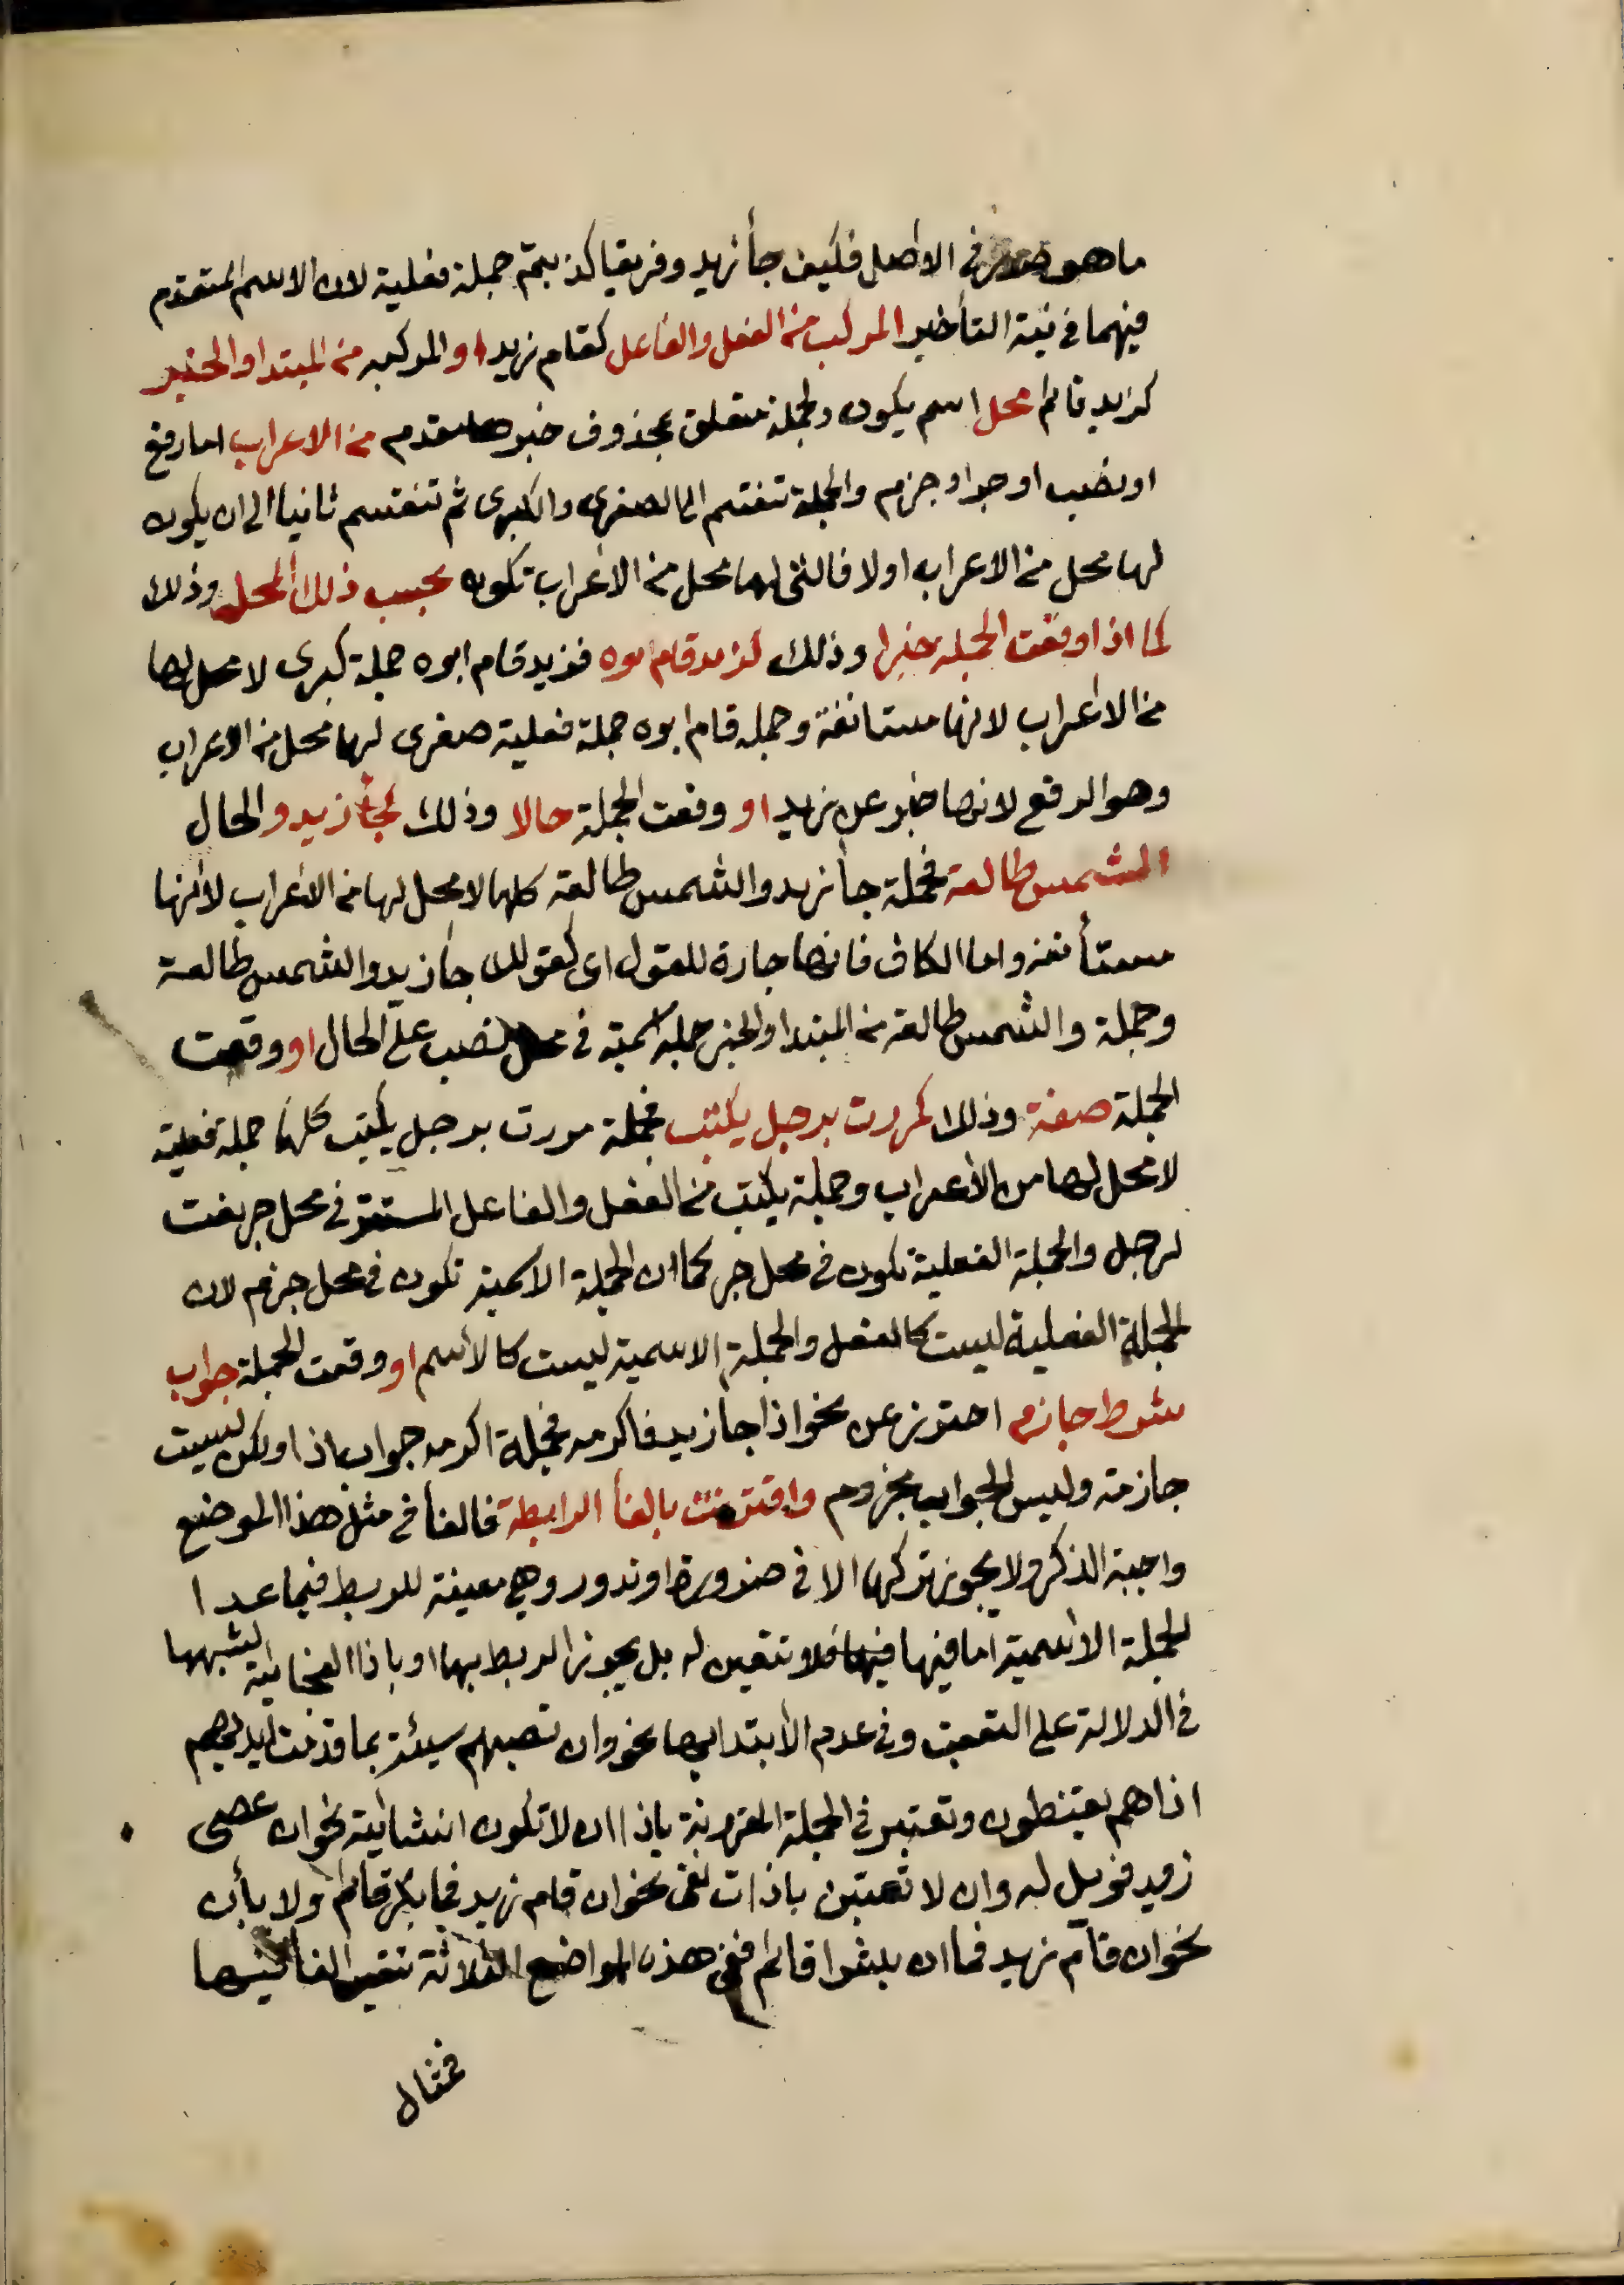 ما هو صدر في الاصل فكيف جأ زيد وفريقا كذبتم جملة فعلية لان الاسم المتقدم
فيهما في نية التأخير المركب من الفعل والفاعل كقام زيد او المركبه من المبتدا والخبر
كزيد قائم محل اسم يكون والجملة متعلق بمحذوف خبرها مقدم من الاعراب اما رفع
او نصب او جر او جزم والجملة تنقسم الى الصغرى والكبرى ثم تنقسم ثانيا الى ان يكون
لها محل من الاعراب اولا فالتى لها محل من الاعراب تكون بحسب ذلك المحل وذلك
كما اذا وقعت الجملة خبرا وذلك كزيد قام ابوه فزيد قام ابوه جملة كبرى لا محل لها
من الاعراب لانها مستانفة وجمله قام ابوه جملة فعلية صغرى لها محل من الاعراب
وهو الرفع لانها خبر عن زيد او وقعت الجملة حالا وذلك كجأ زيد والحال
الشمس طالعة فجملة جأ زيد والشمس طالعة كلها لا محل لها من الاعراب لأنها
مستأنفه واما الكاف فانها جارة للقول اى كقولك جأ زيد والشمس طالعة
وجملة والشمس طالعة من المبتدا والخبر جملة اسمية في محل نصب على الحال او وقعت
الجملة صفة وذلك كمررت برجل يكتب فجملة مررت برجل يكتب كلها جملة فعلية
لا محل لها من الأعراب وجملة يكتب من الفعل والفاعل المستتر في محل جر نعت
لرجل والجملة الفعلية تكون في محل جر كما ان الجملة الاسمية تكون في محل جزم لان
الجملة الفعلية ليست كالفعل والجملة الاسمية ليست كالأسم او وقعت الجملة جواب
شرط جازم احترز عن نحو اذا جأ زيد فاكرمه فجملة اكرمه جواب اذا ولكن ليست
جازمة وليس الجواب بمجزوم واقترنت بالفأ الرابطة فالفأ في مثل هذا الموضع
واجبة الذكر ولا يجوز تركها الا في ضرورة او ندور وهي معينة للربط فيما عدا
الجملة الاسمية اما فيها فيها فلا تتعين له بل يجوز الربط بها او باذا الفجائية لشبهها
في الدلالة على التعقيب وفي عدم الأبتدا بها نحو وان تصبهم سيئة بما قدمت ايديهم
اذا هم يقنطون وتعتبر في الجملة المقرونة باذا ان لا تكون انشائية نحو ان عصى
زيد فويل له وان لا تقترن باذات نفى نحو ان قام زيد فما بكر قائم ولا بأن
نحو ان قام زيد فما ان بشرا قائم ففى هذه المواضع الثلاثة تتعين الفأ فيها
فمثال